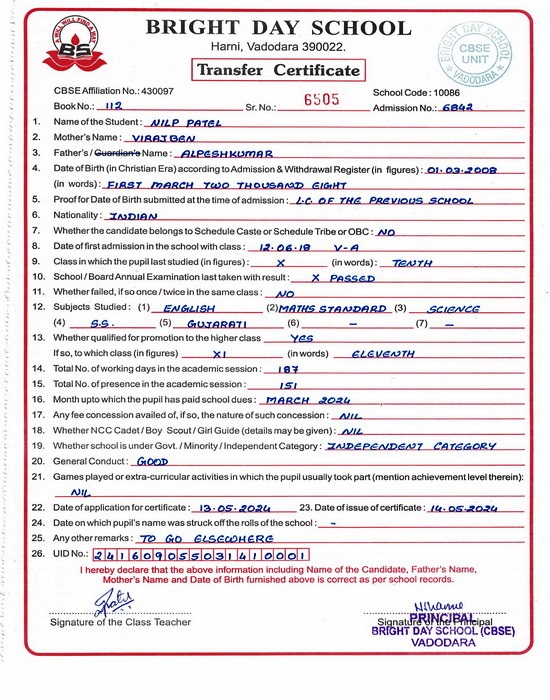 A WILL WILL FIND A WAY
BS
BRIGHT DAY SCHOOL
Harni, Vadodara 390022.
Transfer Certificate
BRIGHT DAY SCHOOL
CBSE
UNIT
VADODARA
CBSE Affiliation No.: 430097 School Code : 10086
Book No.: 112 Sr. No.: 6505 Admission No.: 6842
1. Name of the Student : NILP PATEL
2. Mother's Name : VIRAJBEN
3. Father's / Guardian's Name : ALPESHKUMAR
4. Date of Birth (in Christian Era) according to Admission & Withdrawal Register (in figures) : 01.03.2008
(in words) : FIRST MARCH TWO THOUSAND EIGHT
5. Proof for Date of Birth submitted at the time of admission : L.C. OF THE PREVIOUS SCHOOL
6. Nationality : INDIAN
7. Whether the candidate belongs to Schedule Caste or Schedule Tribe or OBC : NO
8. Date of first admission in the school with class : 12.06.18 V-A
9. Class in which the pupil last studied (in figures) : X (in words) : TENTH
10. School / Board Annual Examination last taken with result : X PASSED
11. Whether failed, if so once / twice in the same class : NO
12. Subjects Studied : (1) ENGLISH (2) MATHS STANDARD (3) SCIENCE
(4) S.S. (5) GUJARATI (6) – (7) –
13. Whether qualified for promotion to the higher class YES
If so, to which class (in figures) XI (in words) ELEVENTH
14. Total No. of working days in the academic session : 187
15. Total No. of presence in the academic session : 151
16. Month upto which the pupil has paid school dues : MARCH 2024
17. Any fee concession availed of, if so, the nature of such concession : NIL
18. Whether NCC Cadet / Boy Scout / Girl Guide (details may be given) : NIL
19. Whether school is under Govt. / Minority / Independent Category : INDEPENDENT CATEGORY
20. General Conduct : GOOD
21. Games played or extra-curricular activities in which the pupil usually took part (mention achievement level therein):
NIL
22. Date of application for certificate : 13.05.2024 23. Date of issue of certificate : 14.05.2024
24. Date on which pupil's name was struck off the rolls of the school : –
25. Any other remarks : TO GO ELSEWHERE
26. UID No.: 241609055031410001
I hereby declare that the above information including Name of the Candidate, Father's Name,
Mother's Name and Date of Birth furnished above is correct as per school records.
Signature of the Class Teacher Signature of the Principal
PRINCIPAL
BRIGHT DAY SCHOOL (CBSE)
VADODARA